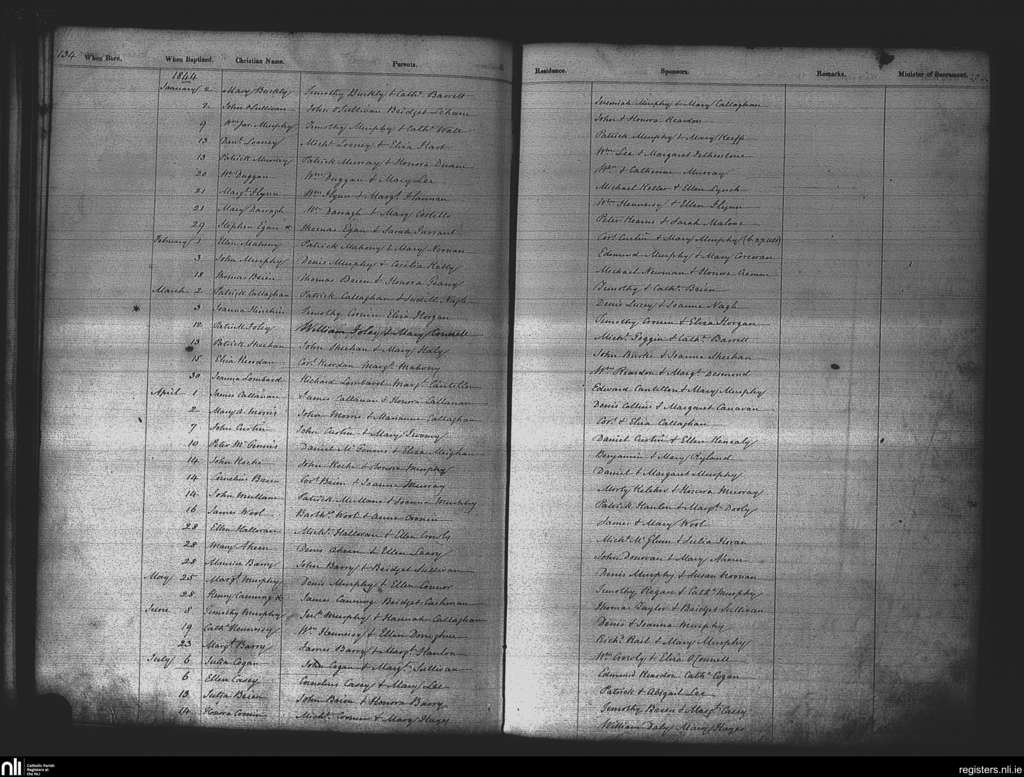 134 When Born. When Baptised. Christian Name. Parents. Residence. Sponsors. Remarks. Minister of Sacrament.
1844
January 2 Mary Buckly Timothy Buckly & Cathe. Barrett Jeremiah Murphy & Mary Callaghan
2 John O Sullivan John O Sullivan Bridget John & Honora Reardon
9 Wm. Jas. Murphy Timothy Murphy & Cathe. Patrick Murphy & Mary Keeffe
13 Danl. Looney Michl. Looney & Eliza Hart Wm. Lee & Margaret
13 Patrick Murray Patrick Murray & Honora Wm. & Catherine Murray
20 Wm. Duggan Wm. Duggan & Mary Lee Michael Keller & Ellen Lynch
21 Margt. Flynn Wm. Flynn & Margt. Wm. Hennessy & Ellen Flynn
21 Mary Darragh Wm. Darragh & Mary Costello Peter Hearne & Sarah Malone
29 Stephen Egan Thomas Egan & Sarah Sarrant Cors. Curtin & Mary Murphy
February 1 Ellen Mahony Patrick Mahony & Mary Noonan Edmund Murphy & Mary Corcoran
3 John Murphy Denis Murphy & Cecilia Kelly Michael Newman & Honora
18 Thomas Brien Thomas Brien & Honora Geany Timothy & Cathe. Brien
March 2 Patrick Callaghan Patrick Callaghan & Judith Nagle Denis Lucey & Joanna Nagle
3 Joanna Timothy Cronin Eliza Horgan Timothy Cronin & Eliza Horgan
12 Patrick Foley William Foley & Mary Connell Michl. & Cathe. Barrett
13 Patrick Sheehan John Sheehan & Mary Haly John Burke & Joanna Sheehan
15 Eliza Reordan Cors. Reordan Margt. Mahony Wm. Reardon & Margt. Desmond
30 Joanna Lombard Richard Lombard Margt. Cantillon Edward Cantillon & Mary Murphy
April 1 James Callanan James Callanan & Honora Callanan Denis Collins & Margaret Canavan
2 Mary A. Morris John Morris & Marianne Callaghan Cors. & Eliza Callaghan
7 John Curtin John Curtin & Mary Twomey Daniel Curtin & Ellen Henealy
10 Peter McGinnis Daniel McGinnis & Eliza Meighan Benjamin & Mary Ryland
14 John Roche John Roche & Honora Murphy Daniel & Margaret Murphy
14 Cornelius Brien Cors. Brien & Joanna Murray Morty Keleher & Honora Murray
14 John McMullane Patrick McMullane & Joanna Patrick Hanlon & Margt. Dooly
16 James Wool Barthw. Wool & Anne Cronin James & Mary Wool
28 Ellen Halloran Michl. Halloran & Ellen Crowly Michl. McGlinn & Julia Horan
28 Mary Ahern Denis Ahern & Ellen Leary John Donovan & Mary Ahern
28 Barry John Barry & Bridget Sullivan Denis Murphy & Susan Noonan
May 25 Margt. Murphy Denis Murphy & Ellen Connor Timothy Regan & Cathe. Murphy
28 Henry Canning James Canning Bridget Cashman Thomas Taylor & Bridget Sullivan
June 8 Timothy Murphy Murphy & Hannah Callaghan Denis & Joanna Murphy
19 Cathe. Hennessy Wm. Hennessy & Ellen Donoghue Richd. & Mary Murphy
23 Margt. Barry James Barry & Margt. Hanlon Wm. Crowly & Eliza O'Connell
July 6 Julia Cogan John Cogan & Margt. Sullivan Edmund Reardon Cathe. Cogan
6 Ellen Casey Cornelius Casey & Mary Lee Patrick & Abigail Lee
13 Julia Brien John Brien & Honora Barry Timothy Brien & Margt. Casey
14 Honora Cronin Michl. Cronin & Mary Hayes William Daly Mary Hayes
nli Catholic Parish Registers at the NLI registers.nli.ie